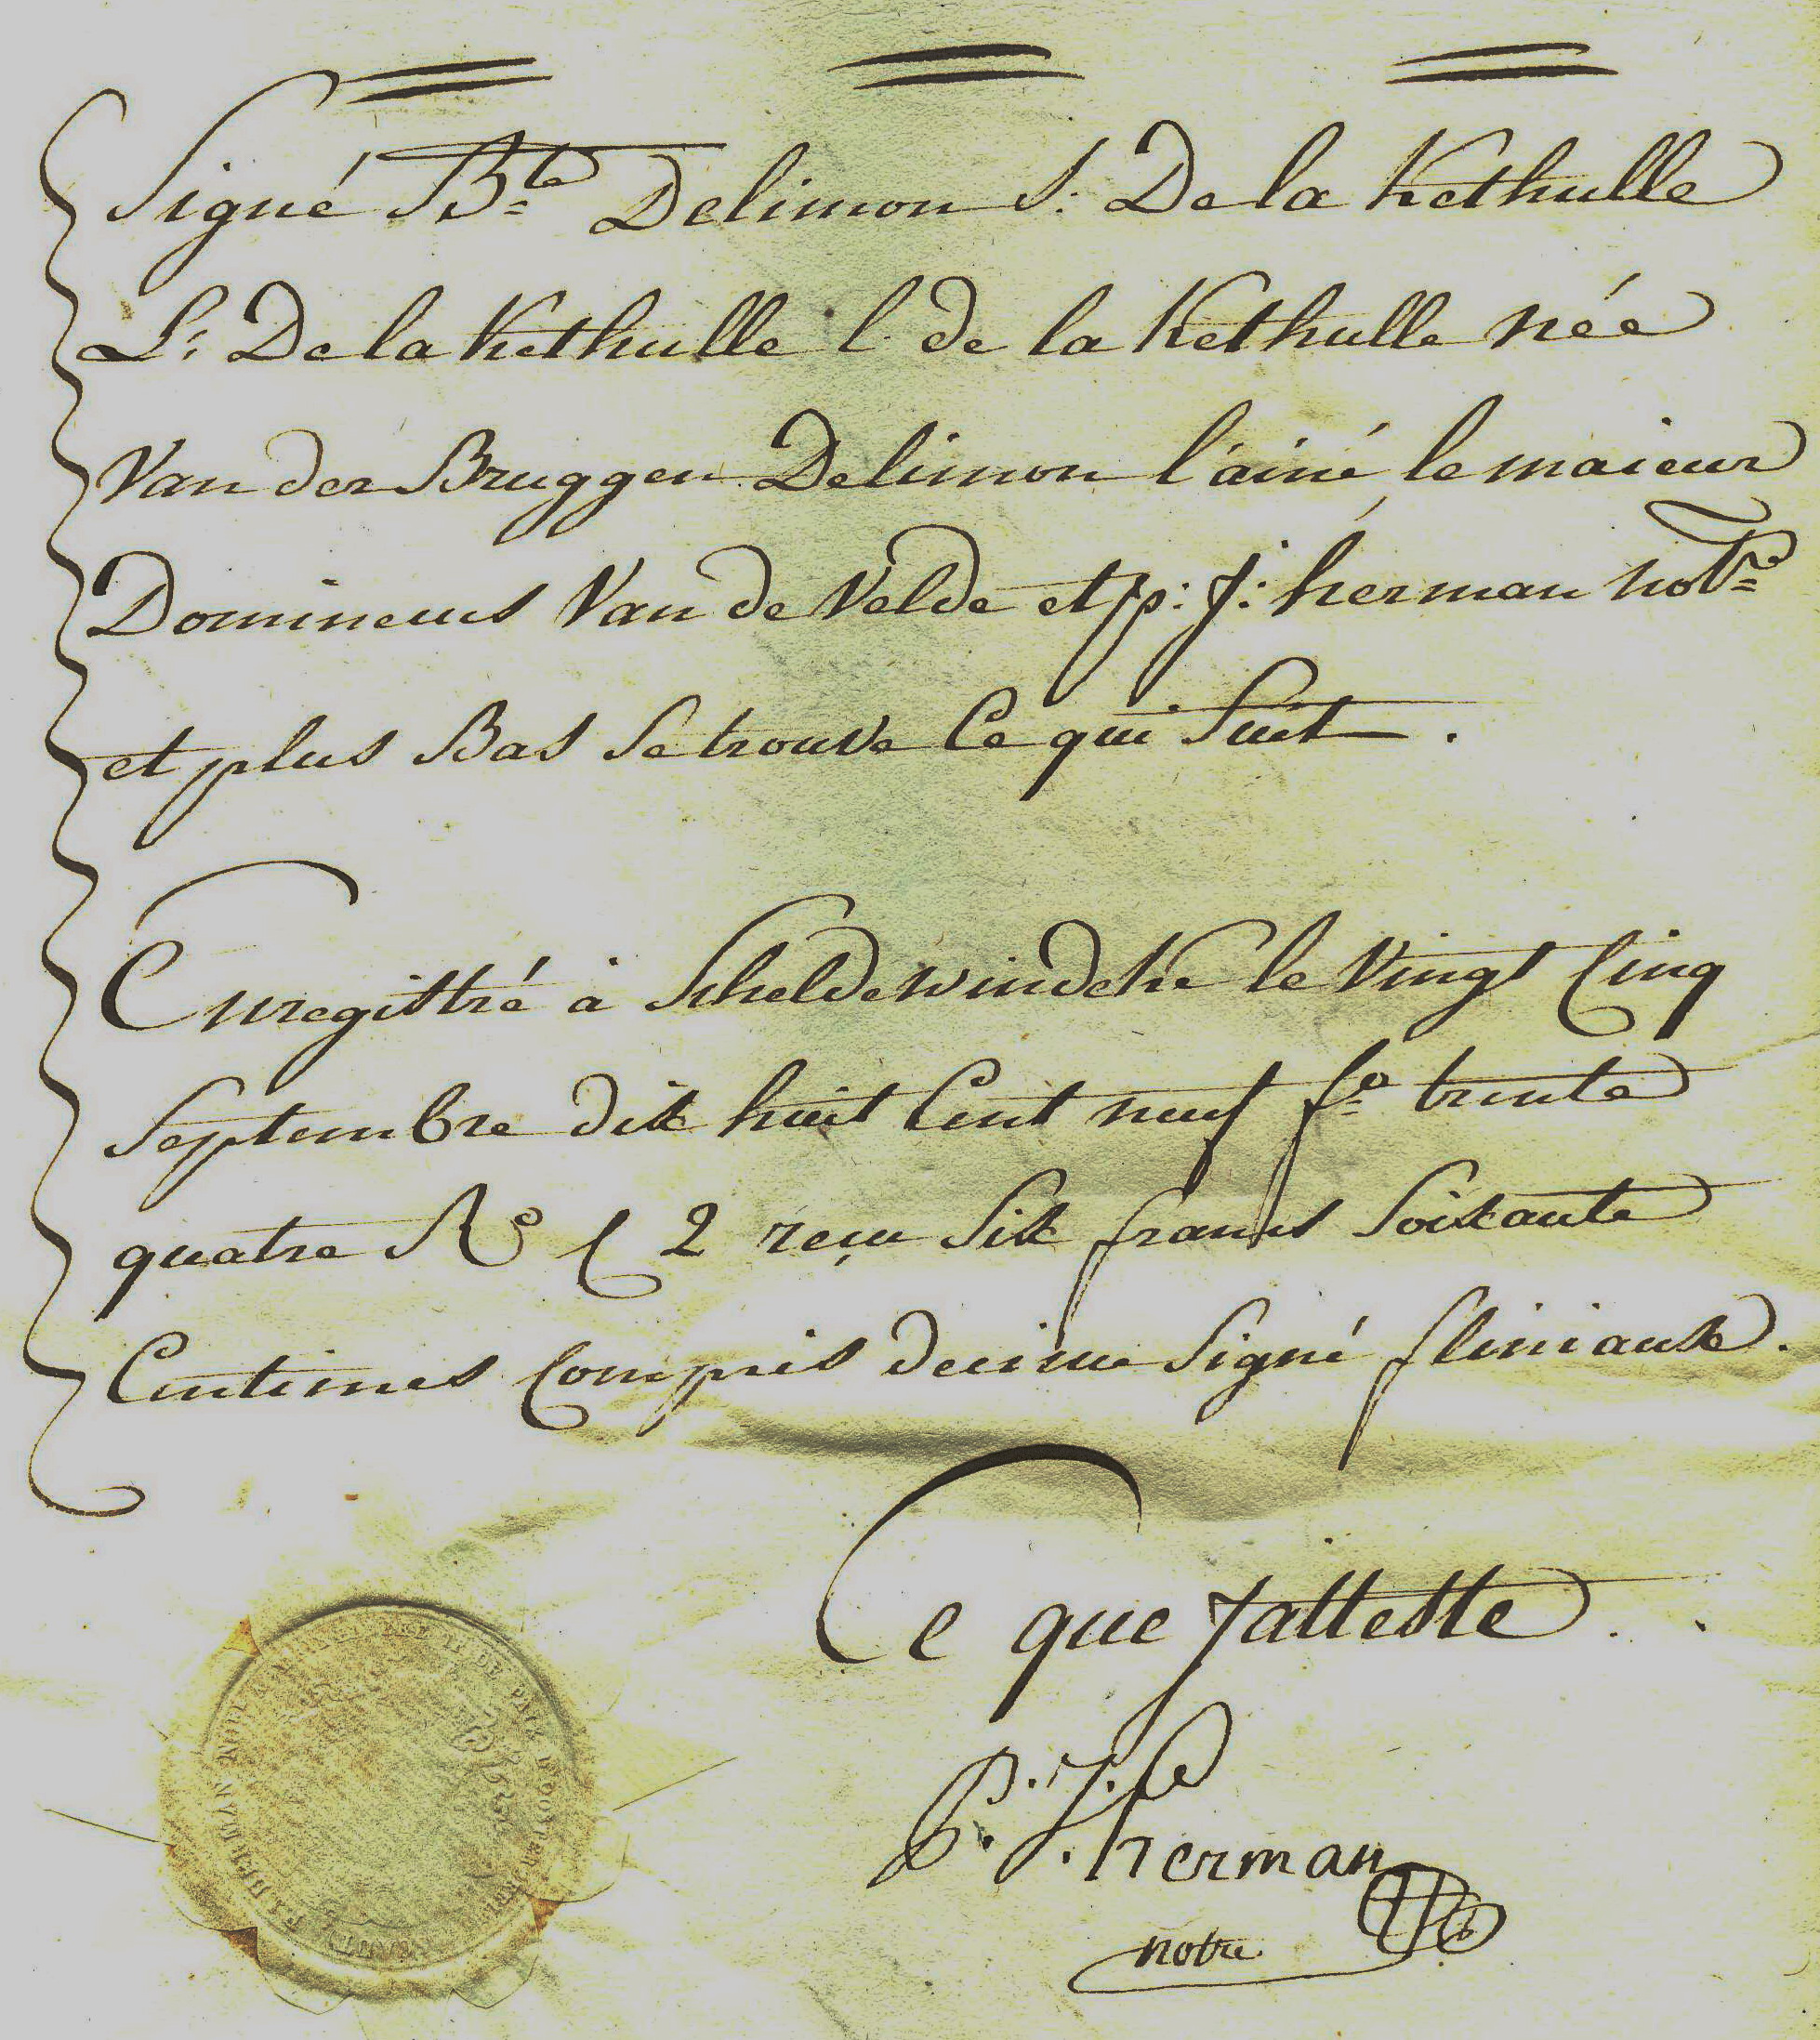 Signé B.te Delimon S: De la Kethulle
L: De la Kethulle l. de la Kethulle née
Van der Bruggen Delimon l'ainé, le maieur
Domineus Van de Velde et p: J: herman not.re
et plus Bas Se trouve Ce qui Suit .
Enregistré à Scheldewindeke le Vingt Cinq
Septembre dix huit Cent neuf f.o trente
quatre R.o C 2 reçu Six francs Soixante
Centimes Compris decime Signé fliniaux .
Ce que J'atteste .
P. J. herman
notre
P. J. HERMAN DE PAIX D'OOSTER